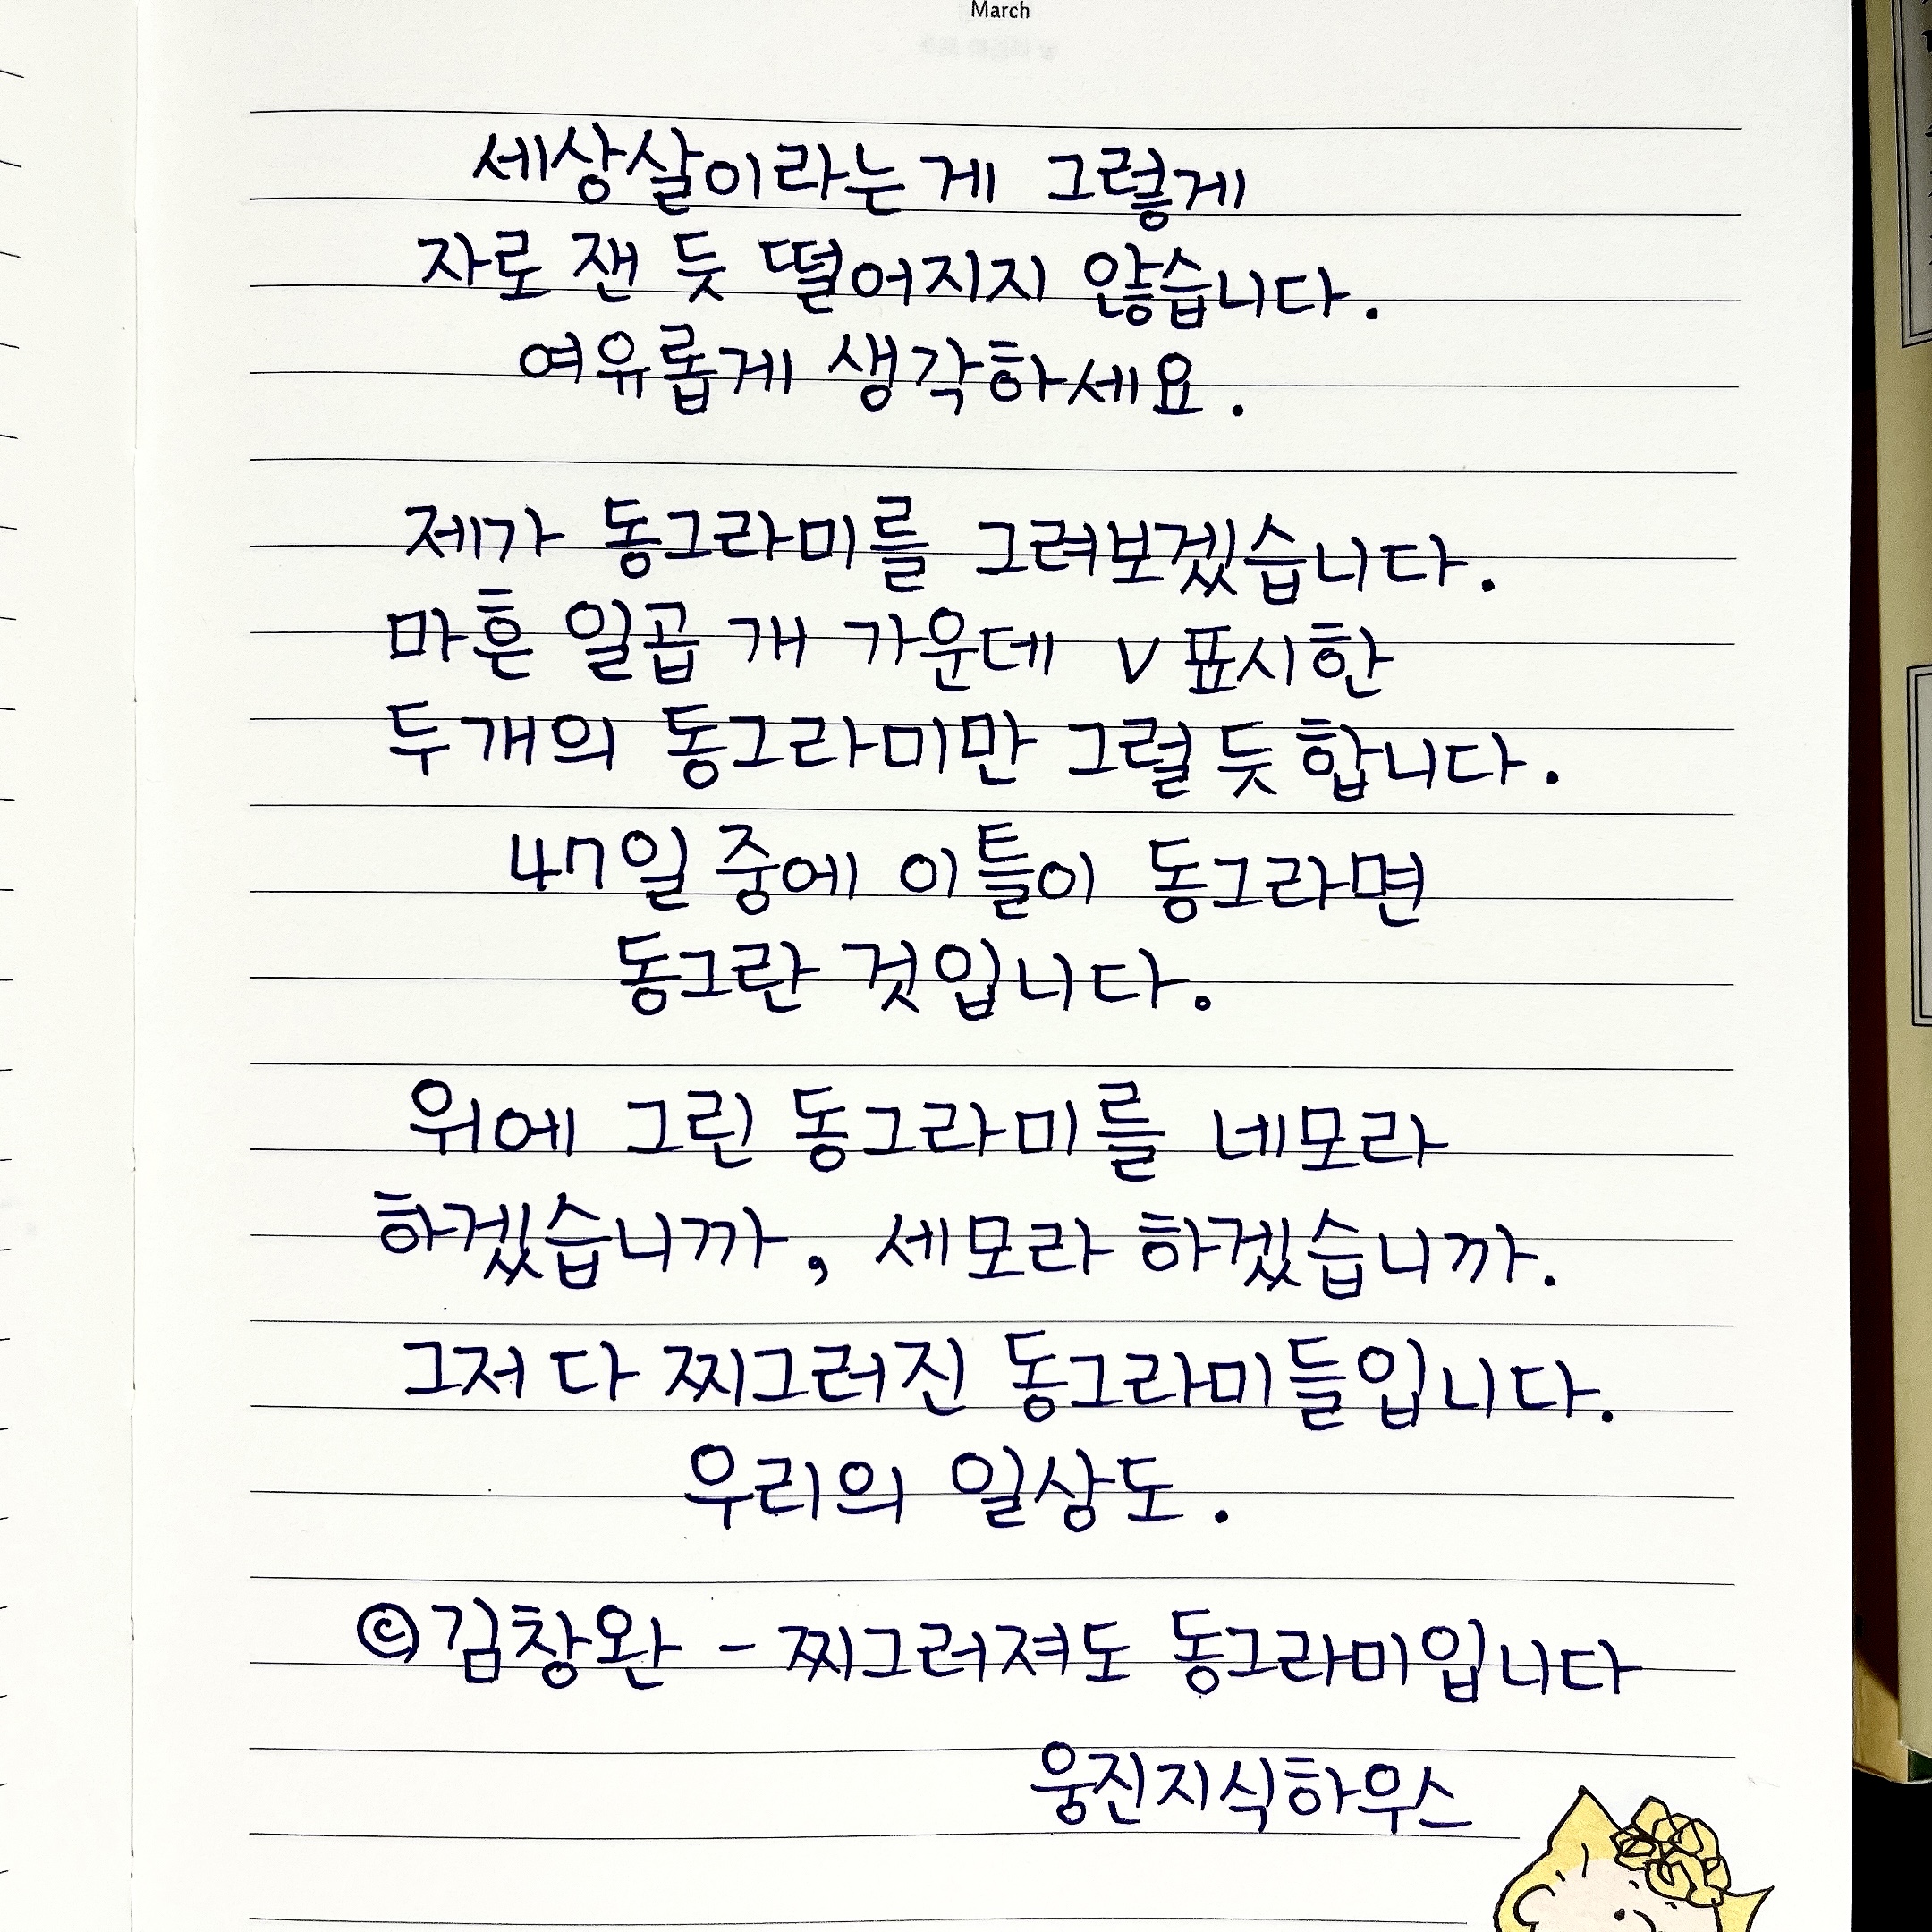 March
세상살이라는 게 그렇게
자로 잰 듯 떨어지지 않습니다.
여유롭게 생각하세요.
제가 동그라미를 그려보겠습니다.
마흔 일곱 개 가운데 V 표시한
두 개의 동그라미만 그럴 듯 합니다.
47일 중에 이틀이 동그라면
동그란 것입니다.
위에 그린 동그라미를 네모라
하겠습니까, 세모라 하겠습니까.
그저 다 찌그러진 동그라미들입니다.
우리의 일상도.
©김창완 - 찌그러져도 동그라미입니다
웅진지식하우스